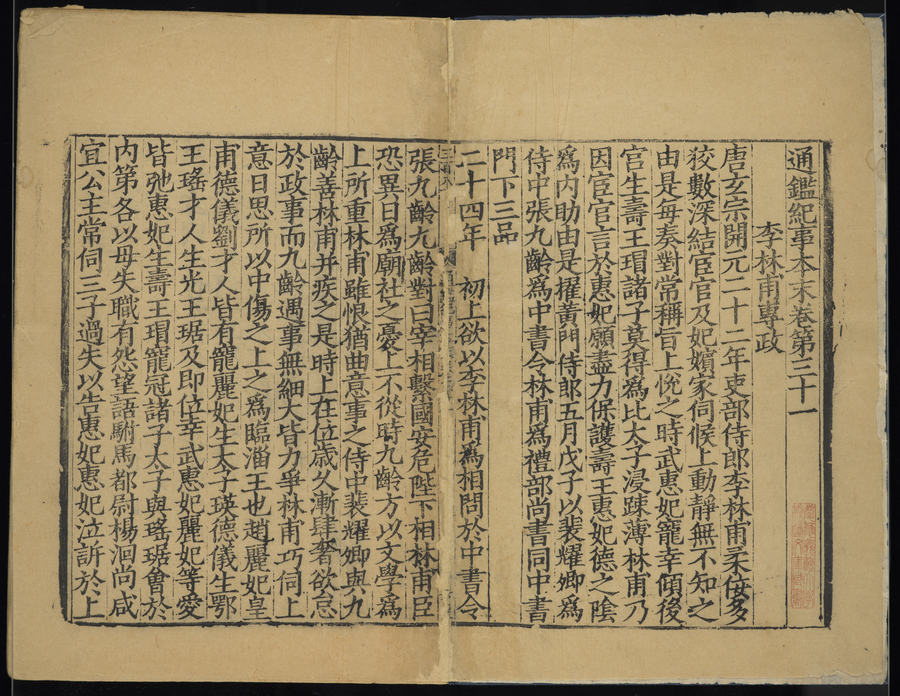 通鑑紀事本末卷第三十一
李林甫專政
唐玄宗開元二十二年吏部侍郎李林甫柔佞多
狡數深結宦官及妃嬪家伺候上動靜無不知之
由是每奏對常稱旨上悅之時武惠妃寵幸傾後
宮生壽王瑁諸子莫得爲比太子浸踈薄林甫乃
因宦官言於惠妃願盡力保護壽王惠妃德之陰
爲內助由是擢黃門侍郎五月戊子以裴耀卿爲
侍中張九齡爲中書令林甫爲禮部尚書同中書
門下三品
二十四年 初上欲以李林甫爲相問於中書令
張九齡九齡對曰宰相繫國安危陛下相林甫臣
恐異日爲廟社之憂上不從時九齡方以文學爲
上所重林甫雖恨猶曲意事之侍中裴耀卿與九
齡善林甫并疾之是時上在位歲久漸肆奢欲怠
於政事而九齡遇事無細大皆力爭林甫巧伺上
意日思所以中傷之上之爲臨淄王也趙麗妃皇
甫德儀劉才人皆有寵麗妃生太子瑛德儀生鄂
王瑤才人生光王琚及即位幸武惠妃麗妃等愛
皆弛惠妃生壽王瑁寵冠諸子太子與瑤琚會於
內第各以母失職有怨望語駙馬都尉楊洄尚咸
宜公主常伺三子過失以告惠妃惠妃泣訴於上